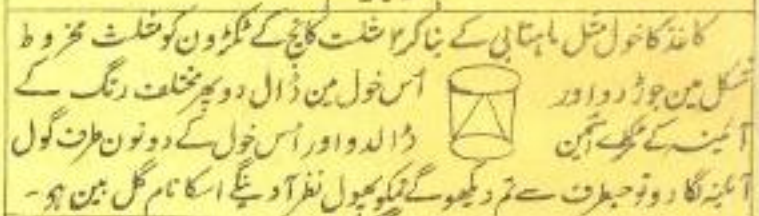 کاغذ کا خول مثل ماہتابی کے بنا کر ۳ مثلث کانچ کے ٹکڑون کو مثلث مخروط
شکل مین جوڑ دو اور اُس خول مین ڈال دو پھر مختلف رنگ کے
آئینہ کے ٹکڑے اسمین ڈالدو اور اُس خول کے دونون طرف گول
آئینہ لگا دو تو جسطرف سے تم دیکھو گے تمکو پھول نظر آوینگے اسکا نام گل بین ہو -